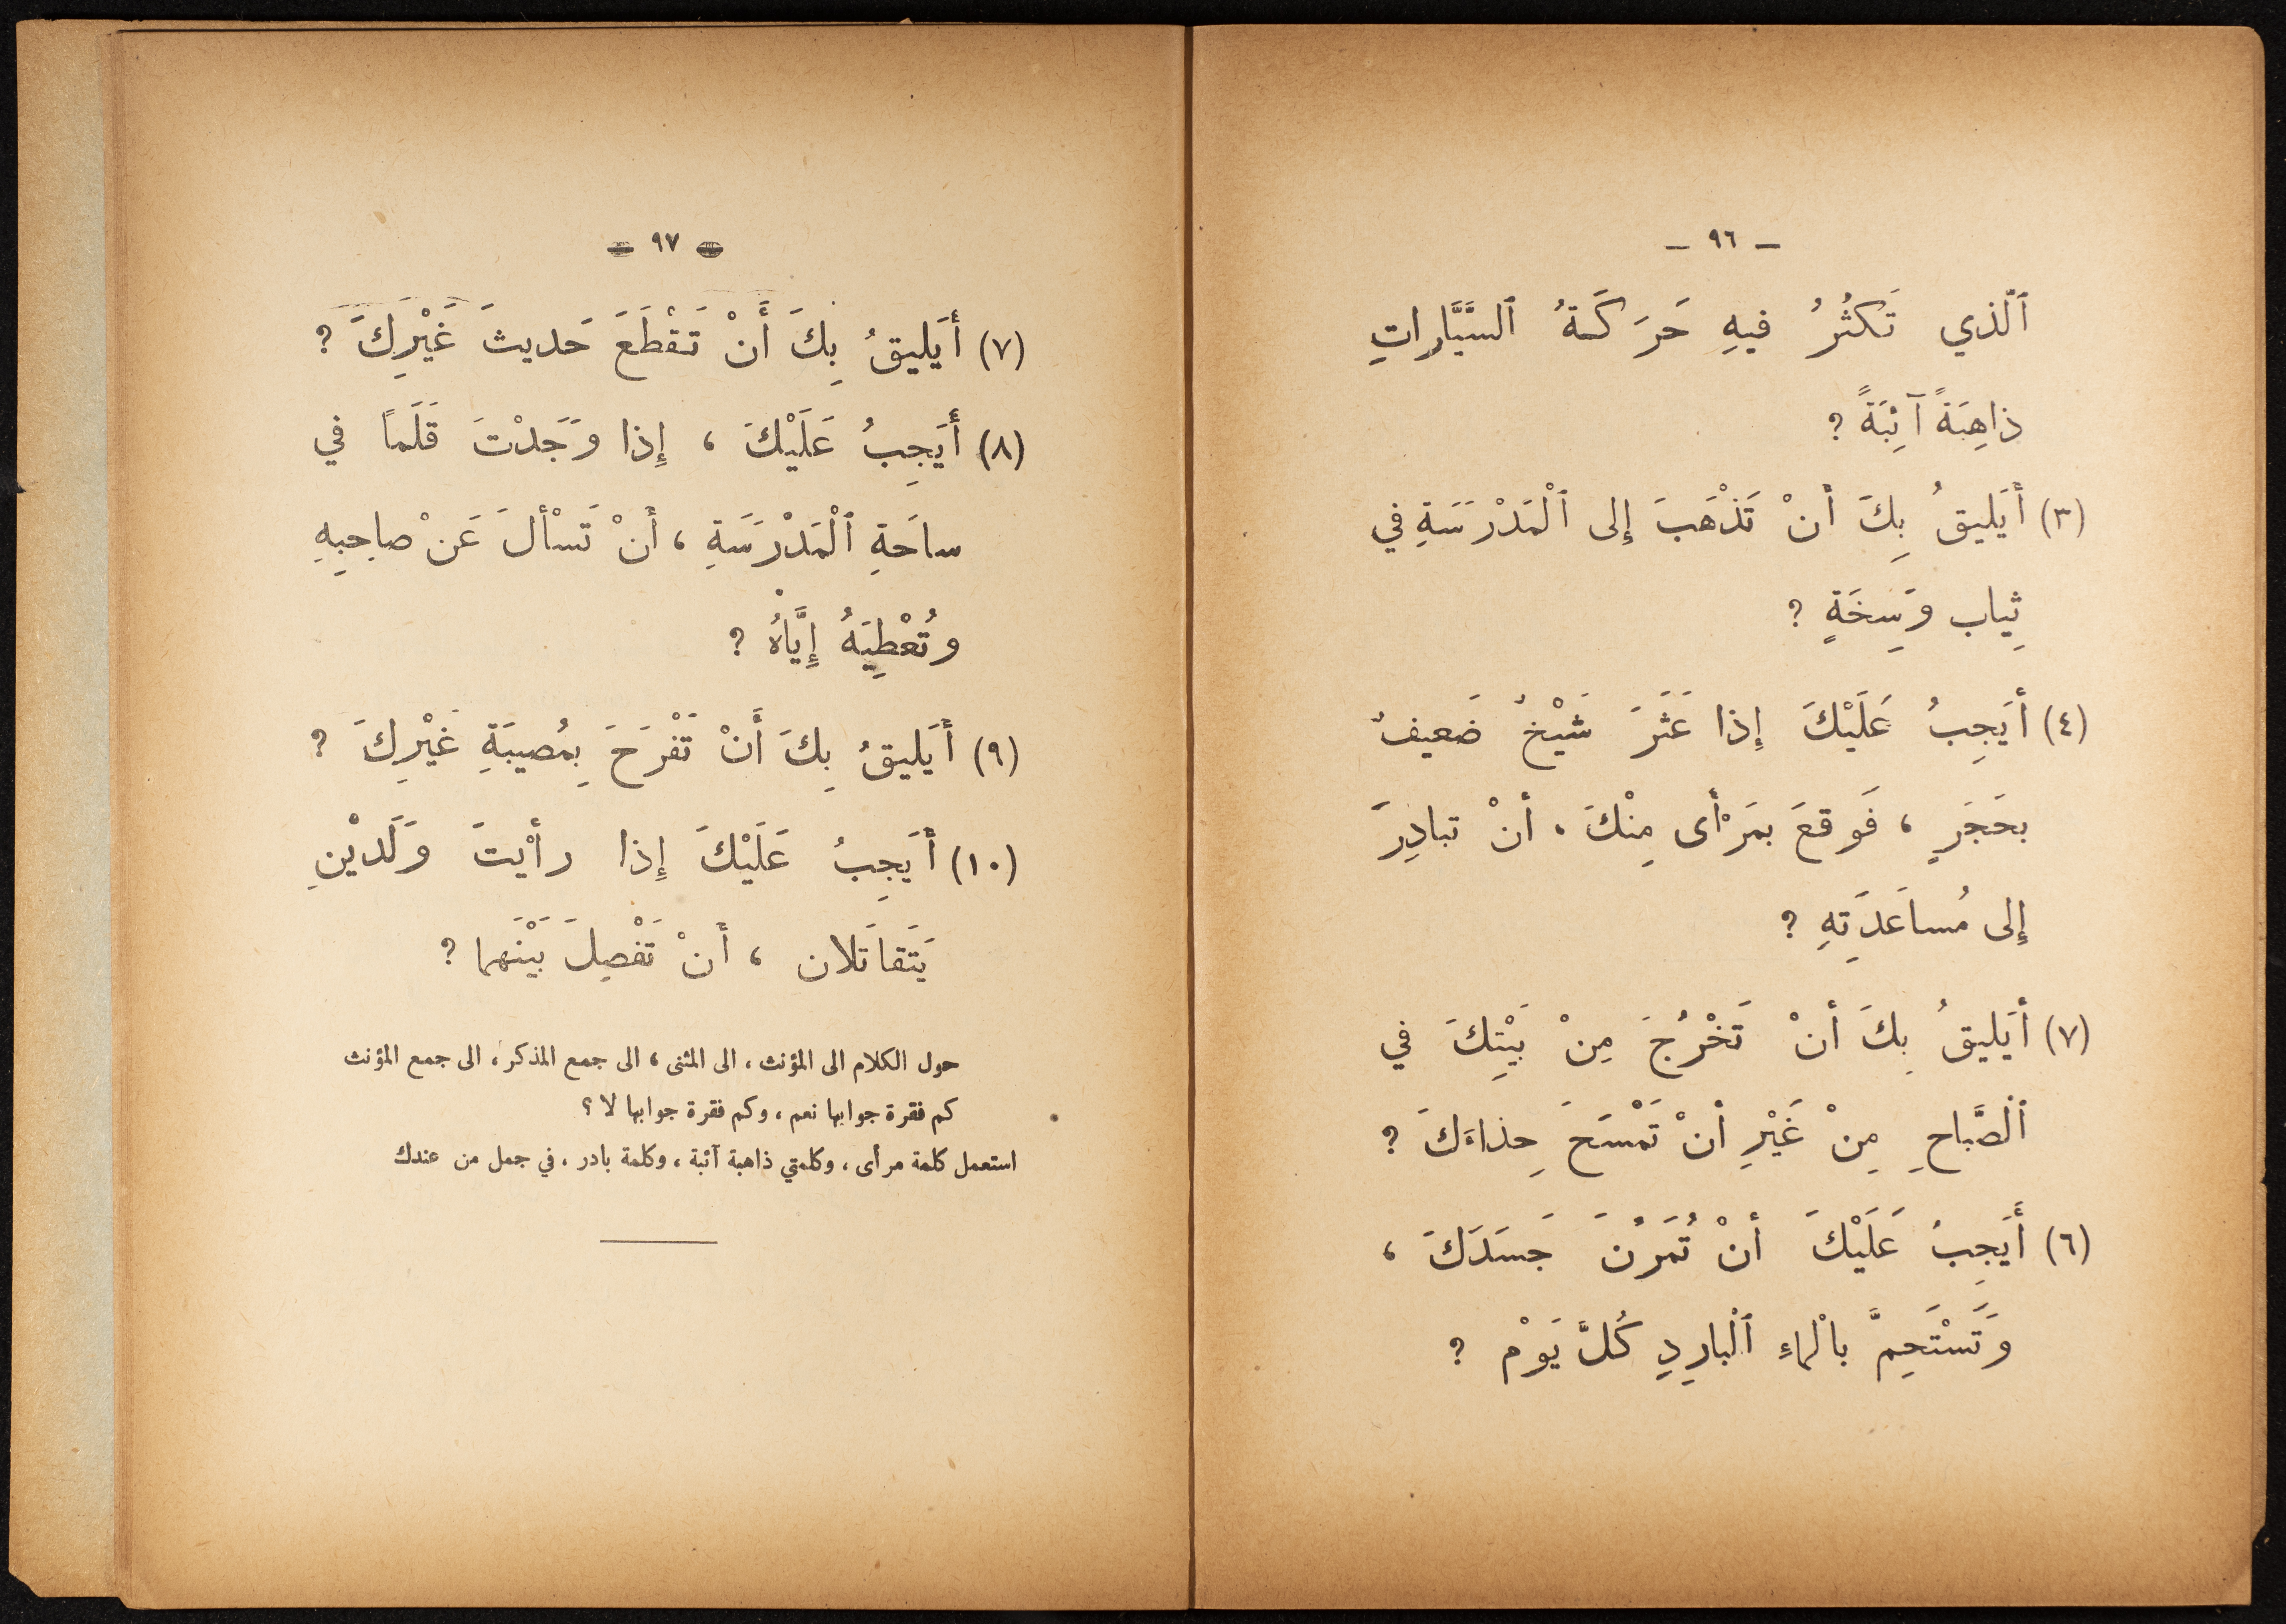 — ٩٦ —
ٱلَّذي تَكثُرُ فيهِ حَرَكَةُ ٱلسَّيَّاراتِ
ذاهِبَةً آئِبَةً ?
(٣) أَيَليقُ بِكَ أَنْ تَذْهَبَ إِلى ٱلْمَدْرَسَةِ في
ثِياب وَسِخَةٍ ?
(٤) أَيَجِبُ عَلَيْكَ إِذا عَثَرَ شَيْخٌ ضَعيفٌ
بحَجَرٍ ، فَوقعَ بمَرْأَى مِنْكَ ، أَنْ تبادِرَ
إِلى مُساعَدَتِهِ ?
(٧) أَيَليقُ بِكَ أَنْ تَخْرُجَ مِنْ بَيْتِكَ في
ٱلصَّباحِ مِنْ غَيْرِ أَنْ تَمْسَحَ حِذاءَكَ ?
(٦) أَيَجِبُ عَلَيْكَ أَنْ تُمَرِّنَ جَسَدَكَ ،
وَتَسْتَحِمَّ بالْماءِ ٱلْبارِدِ كُلَّ يَوْم ?
— ٩٧ —
(٧) أَيَليقُ بِكَ أَنْ تَقْطَعَ حَديثَ غَيْرِكَ ?
(٨) أَيَجِبُ عَلَيْكَ ، إِذا وَجَدْتَ قَلَماً في
ساحَةِ ٱلْمَدْرَسَةِ ، أَنْ تَسْأَلَ عَنْ صاحِبِهِ
وتُعْطِيَهُ إِيَّاهُ ?
(٩) أَيَليقُ بِكَ أَنْ تَفْرَحَ بِمُصيبَةِ غَيْرِكَ ?
(١٠) أَيَجِبُ عَلَيْكَ إِذا رأَيْتَ وَلَدَيْنِ
يَتَقاتَلان ، أَنْ تَفْصِلَ بَيْنَهما ?
حول الكلام الى المؤنث ، الى المثنى ، الى جمع المذكر ، الى جمع المؤنث
كم فقرة جوابها نعم ، وكم فقرة جوابها لا ؟
استعمل كلمة مرأى ، وكلمتي ذاهبة آئبة ، وكلمة بادر ، في جمل من عندك